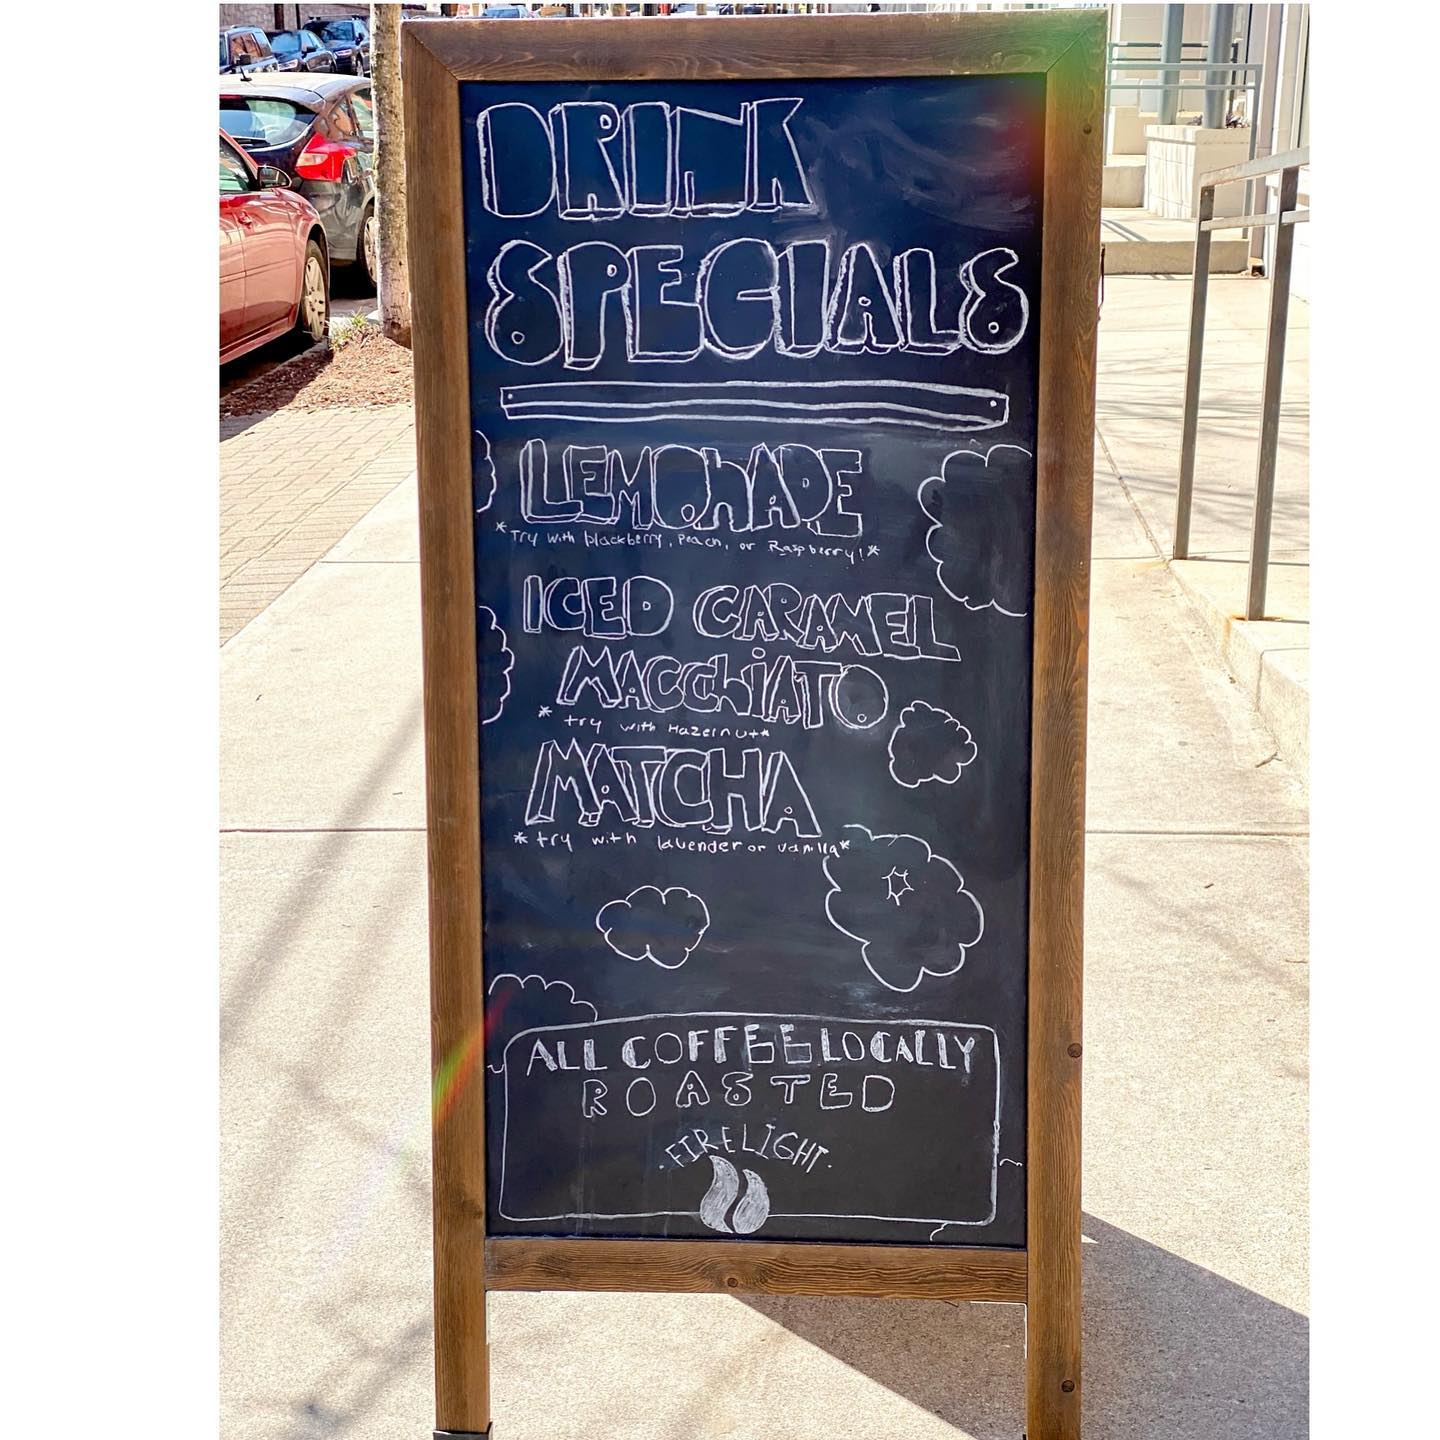 DRINK
SPECIALS
LEMONADE
*Try with blackberry, Peach, or Raspberry!*
ICED CARAMEL
MACCHiATO
* try with Hazelnut*
MATCHA
* try with lavender or vanilla*
ALL COFFEE LOCALLY
ROASTED
.FIRELIGHT.